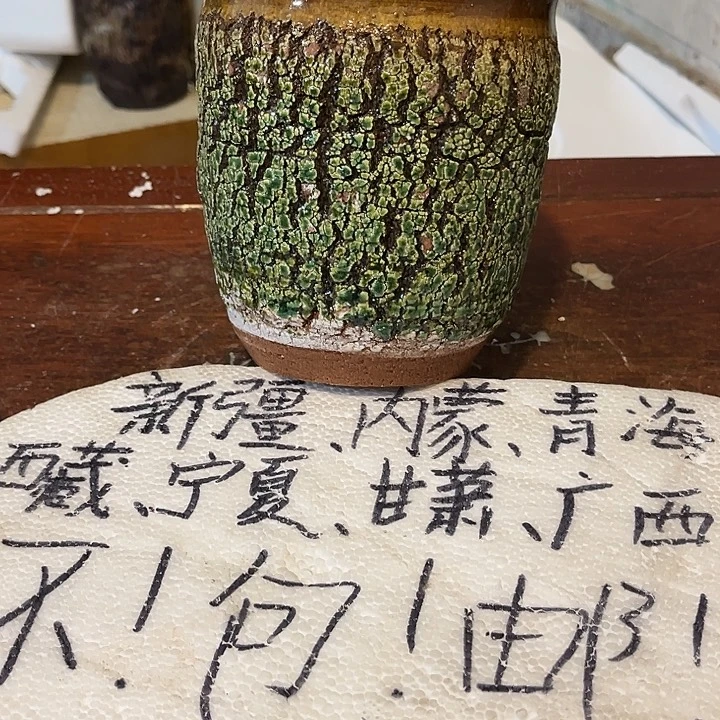 新疆、内蒙、青海
西藏、宁夏、甘萧、广西
不！包！邮！